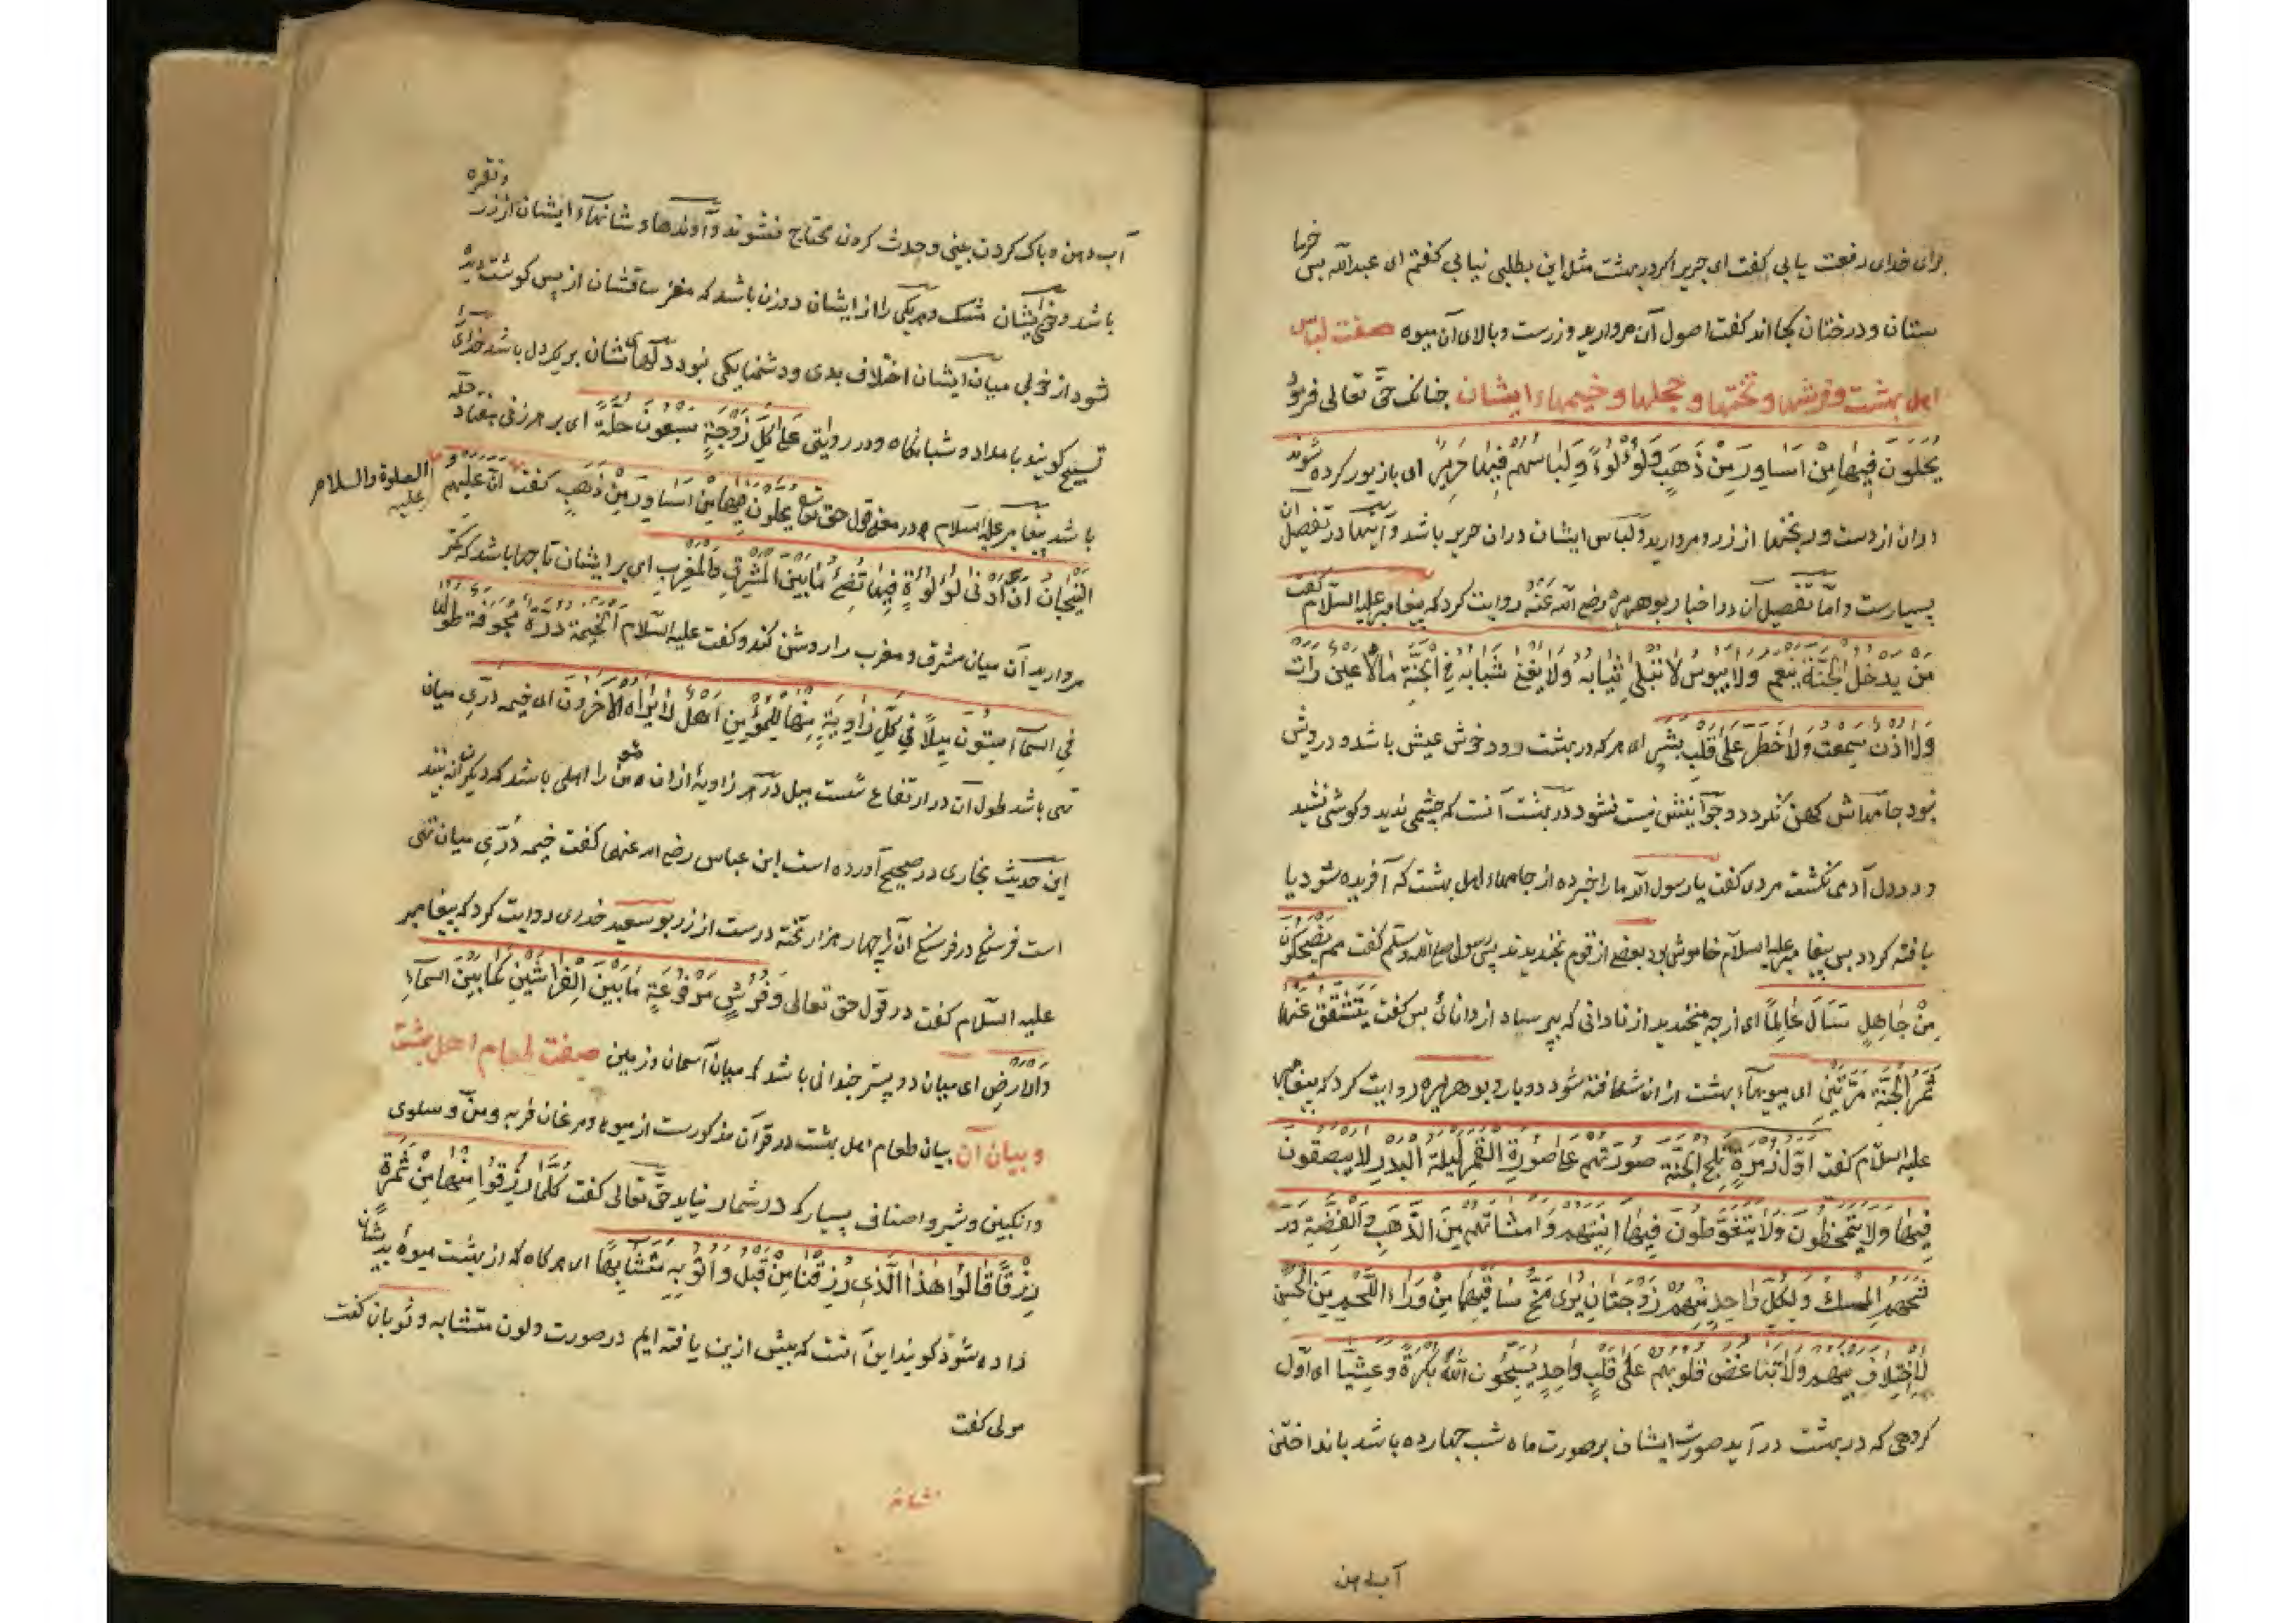 برای خدای رفعت یابی کفت ای جریر اکر در بهشت مثل این بطلبی نیابی کفتم ای عبدالله بس خرما
ستنان و درختان کجااند کفت اصول آن مروارید و زرست و بالای آن میوه صفت لباس
اهل بهشت و فرشها و تختها و حجلها و خیمهاء ایشان جنانک حق تعالی فرمود
یحلون فیها من اساور من ذهب ولؤلؤا ولباسهم فیها حریر ای بازیور کرده شوند
دران از دست ورنجنها از زر و مروارید و لباس ایشان دران حریر باشد و اینها در تفصیل آن
بسیارست واما تفصیل آن در اخبار بوهریره رضی الله عنه روایت کرد که پیغامبر علیه السلام کفت
من یدخل الجنة ینعم ولا یبوس لا تبلی ثیابه ولا یفنی شبابه فی الجنة مالا عین رات
ولا اذن سمعت ولا خطر علی قلب بشر ای هرکه در بهشت رود خوش عیش باشد و درویش
نبود جامهاش کهن نکردد و جوانیش نیست نشود در بهشت آنست که جشمی ندید و کوشی نشنید
و در دل آدمی نکشت مردی کفت یا رسول الله ما را خبر ده از جامهاء اهل بهشت که آفریده شود یا
بافته کردد بس پیغامبر علیه السلام خاموش بود بعضی از قوم بخندیدند پس رسول صلی الله وسلم کفت مم تضحکون
من جاهل سئال عالما ای از جه میخندید از نادانی که بپرسیاد از دانائی بس کفت یتشقق عنها
ثمر الجنة مرتین ای میوهاء بهشت ازان شکافته شود دوبار و بوهریره روایت کرد که پیغامبر
علیه السلام کفت اول زمرة تلج الجنة صورتهم علی صورة القمر لیلة البدر لا یبصقون
فیها ولا یتمخطون ولا یتغوطون فیها انیتهم وامشاطهم من الذهب والفضة در
شحهم المسک ولکل واحد منهم زوجتان یری مخ ساقیها من وراء اللحم من الحسن
لا اختلاف بینهم ولا تباغض قلوبهم علی قلب واحد یسبحون الله بکرة وعشیا ای اول
کروهی که در بهشت درآید صورت ایشان بر صورت ماه شب جهارده باشد بانداختن
آب دهن
آب دهن و پاک کردن بینی و حدث کردن محتاج نشوند و آوندها و شانهاء ایشان از زر ونقره
باشد و ایشان مشک و هر یکی را از ایشان دو زن باشد که مغز ساقشان از پس کوشت دیده
شود از خوبی میان ایشان اختلاف بدی و دشمنایکی نبود دلهای شان بر یک دل باشد خدای را
تسبیح کویند بامداد و شبانکاه و در روایتی علی کل زوجة سبعون حلة ای بر هر زنی هفتاد حله
باشد پیغامبر علیه السلام در معنی قول حق تعالی یحلون فیها من اساور من ذهب کفت ان علیهم
الصلوة والسلام علیه
التیجان ان ادنی لؤلؤة فیها تضئ ما بین المشرق والمغرب ای بر ایشان تاجها باشد که کمتر
مروارید آن میان مشرق و مغرب را روشن کند و کفت علیه السلام الخیمة درة مجوفة طولها
فی السمآء ستون میلا فی کل زاویة منها للمؤمنین اهل لا یراه الاخرون ای خیمه دری میان
تهی باشد طول آن در ارتفاع شست میل در هر زاویهٔ ازان مؤمن را اهلی باشد که دیکران نبینند
این حدیث بخاری در صحیح آورده است ابن عباس رضی الله عنهما کفت خیمه دری میان تهی
است فرسنکی در فرسنکی آن را چهار هزار تخته درست از زر بو سعید خدری روایت کرد که پیغامبر
علیه السلام کفت در قول حق تعالی وفرش مرفوعة ما بین الفراشین کما بین السمآء
والارض ای میان دو بستر جندانی باشد که میان آسمان و زمین صفت طعام اهل بهشت
و بیان آن بیان طعام اهل بهشت در قرآن مذکورست از میوه و مرغان فربه و من و سلوی
و انکبین و شیر و اصناف بسیار که در شمار نیاید حق تعالی کفت کلما رزقوا منها من ثمرة
رزقا قالوا هذا الذی رزقنا من قبل واتوا به متشابها ای هرکاه که از بهشت میوهٔ بدیشان
داده شود کویند این آنست که بیش ازین یافته ایم در صورت و لون متشابه و ثوبان کفت
مولی کفت